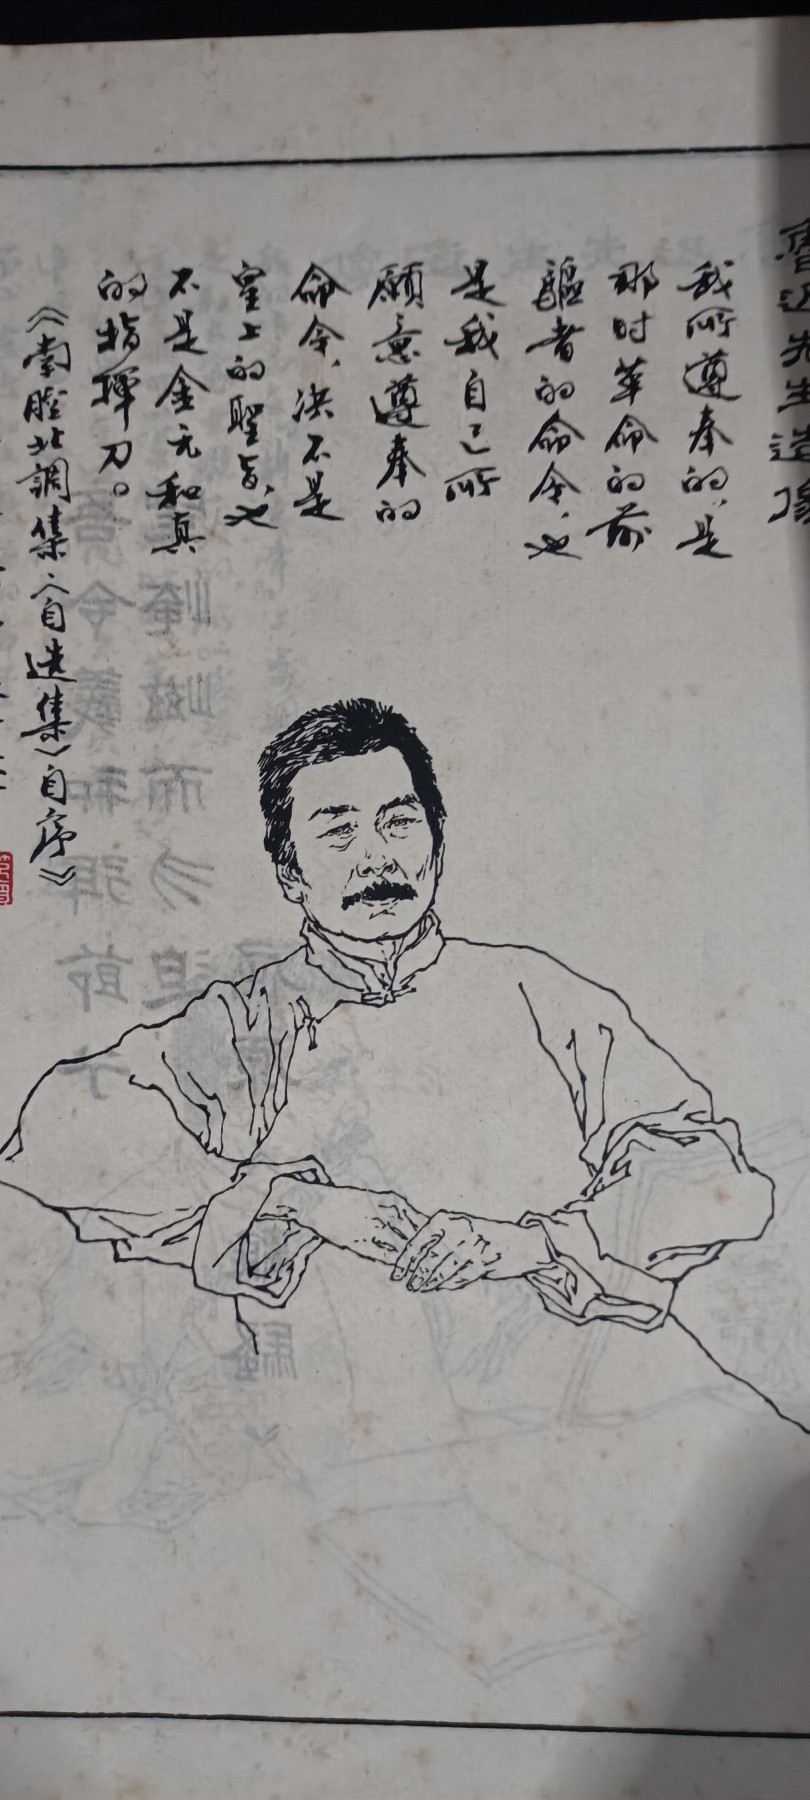 魯迅先生造像
我所遵奉的,是
那时革命的前
驅者的命令,也
是我自己所
願意遵奉的
命令,决不是
皇上的聖旨,也
不是金元和真
的指揮刀。
《南腔北調集·〈自选集〉自序》